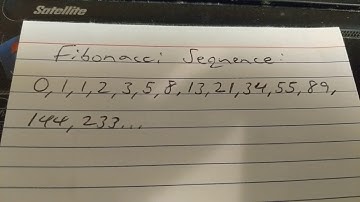 Satellite
Fibonacci Sequence:
0, 1, 1, 2, 3, 5, 8, 13, 21, 34, 55, 89,
144, 233...